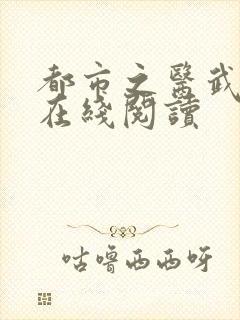 都市之醫武
在綫閱讀
咕嚕西西呀